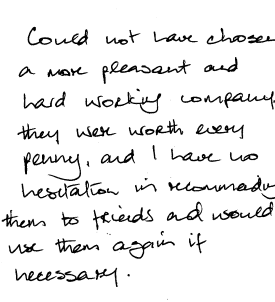 Could not have chosen
a more pleasant and
hard working company,
they were worth every
penny, and I have no
hesitation in recommending
them to friends and would
use them again if
necessary.